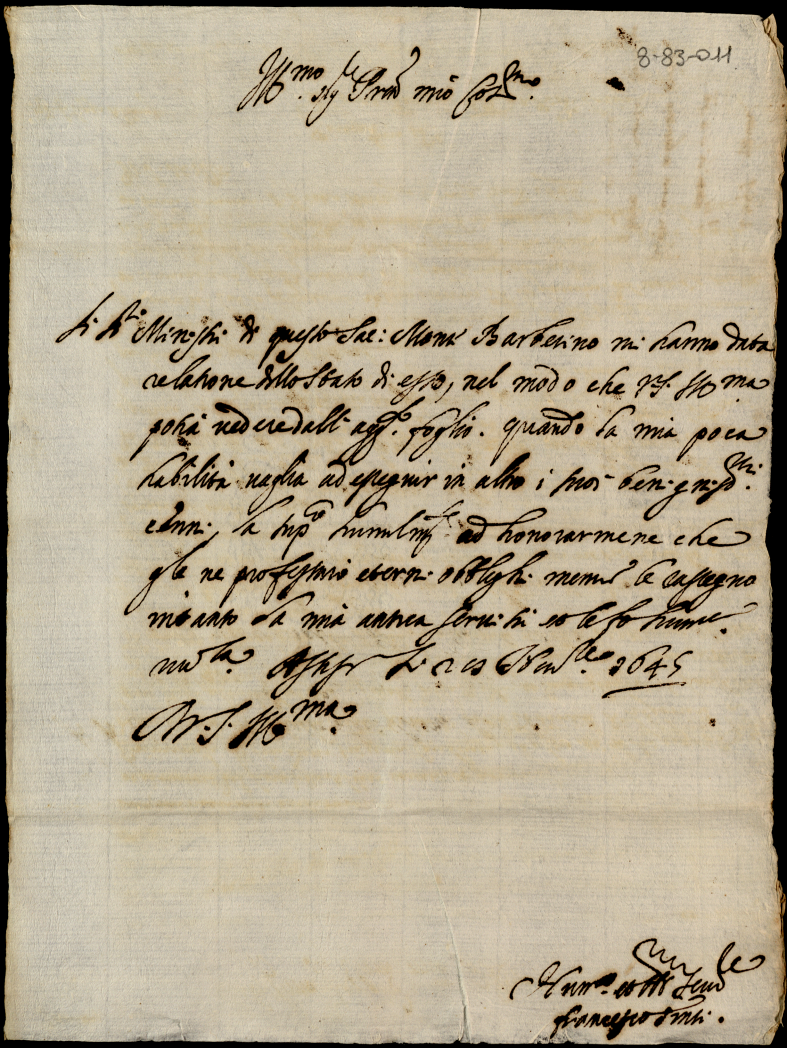 8-83-011
Ill.mo Sig.re Pron mio Col.mo
Li Minisitri di questo Sac: Monte Barberino mi hanno data
relatione dello Stato di esso, nel modo che V.S. Ill.ma
potrà vedere dall' agg.to foglio. quando la mia poca
habilità vaglia ad esseguir in altro i suoi benigniss.mi
cenni, la sup.co humilm.te ad honorarmene che
gle ne professarò eterni oblighi mentre le rassegno
intanto la mia antica servitù et le fo humil.
Li 20 1645
Di V.S. Ill.ma
Hum.o et Ser.re
Francesco